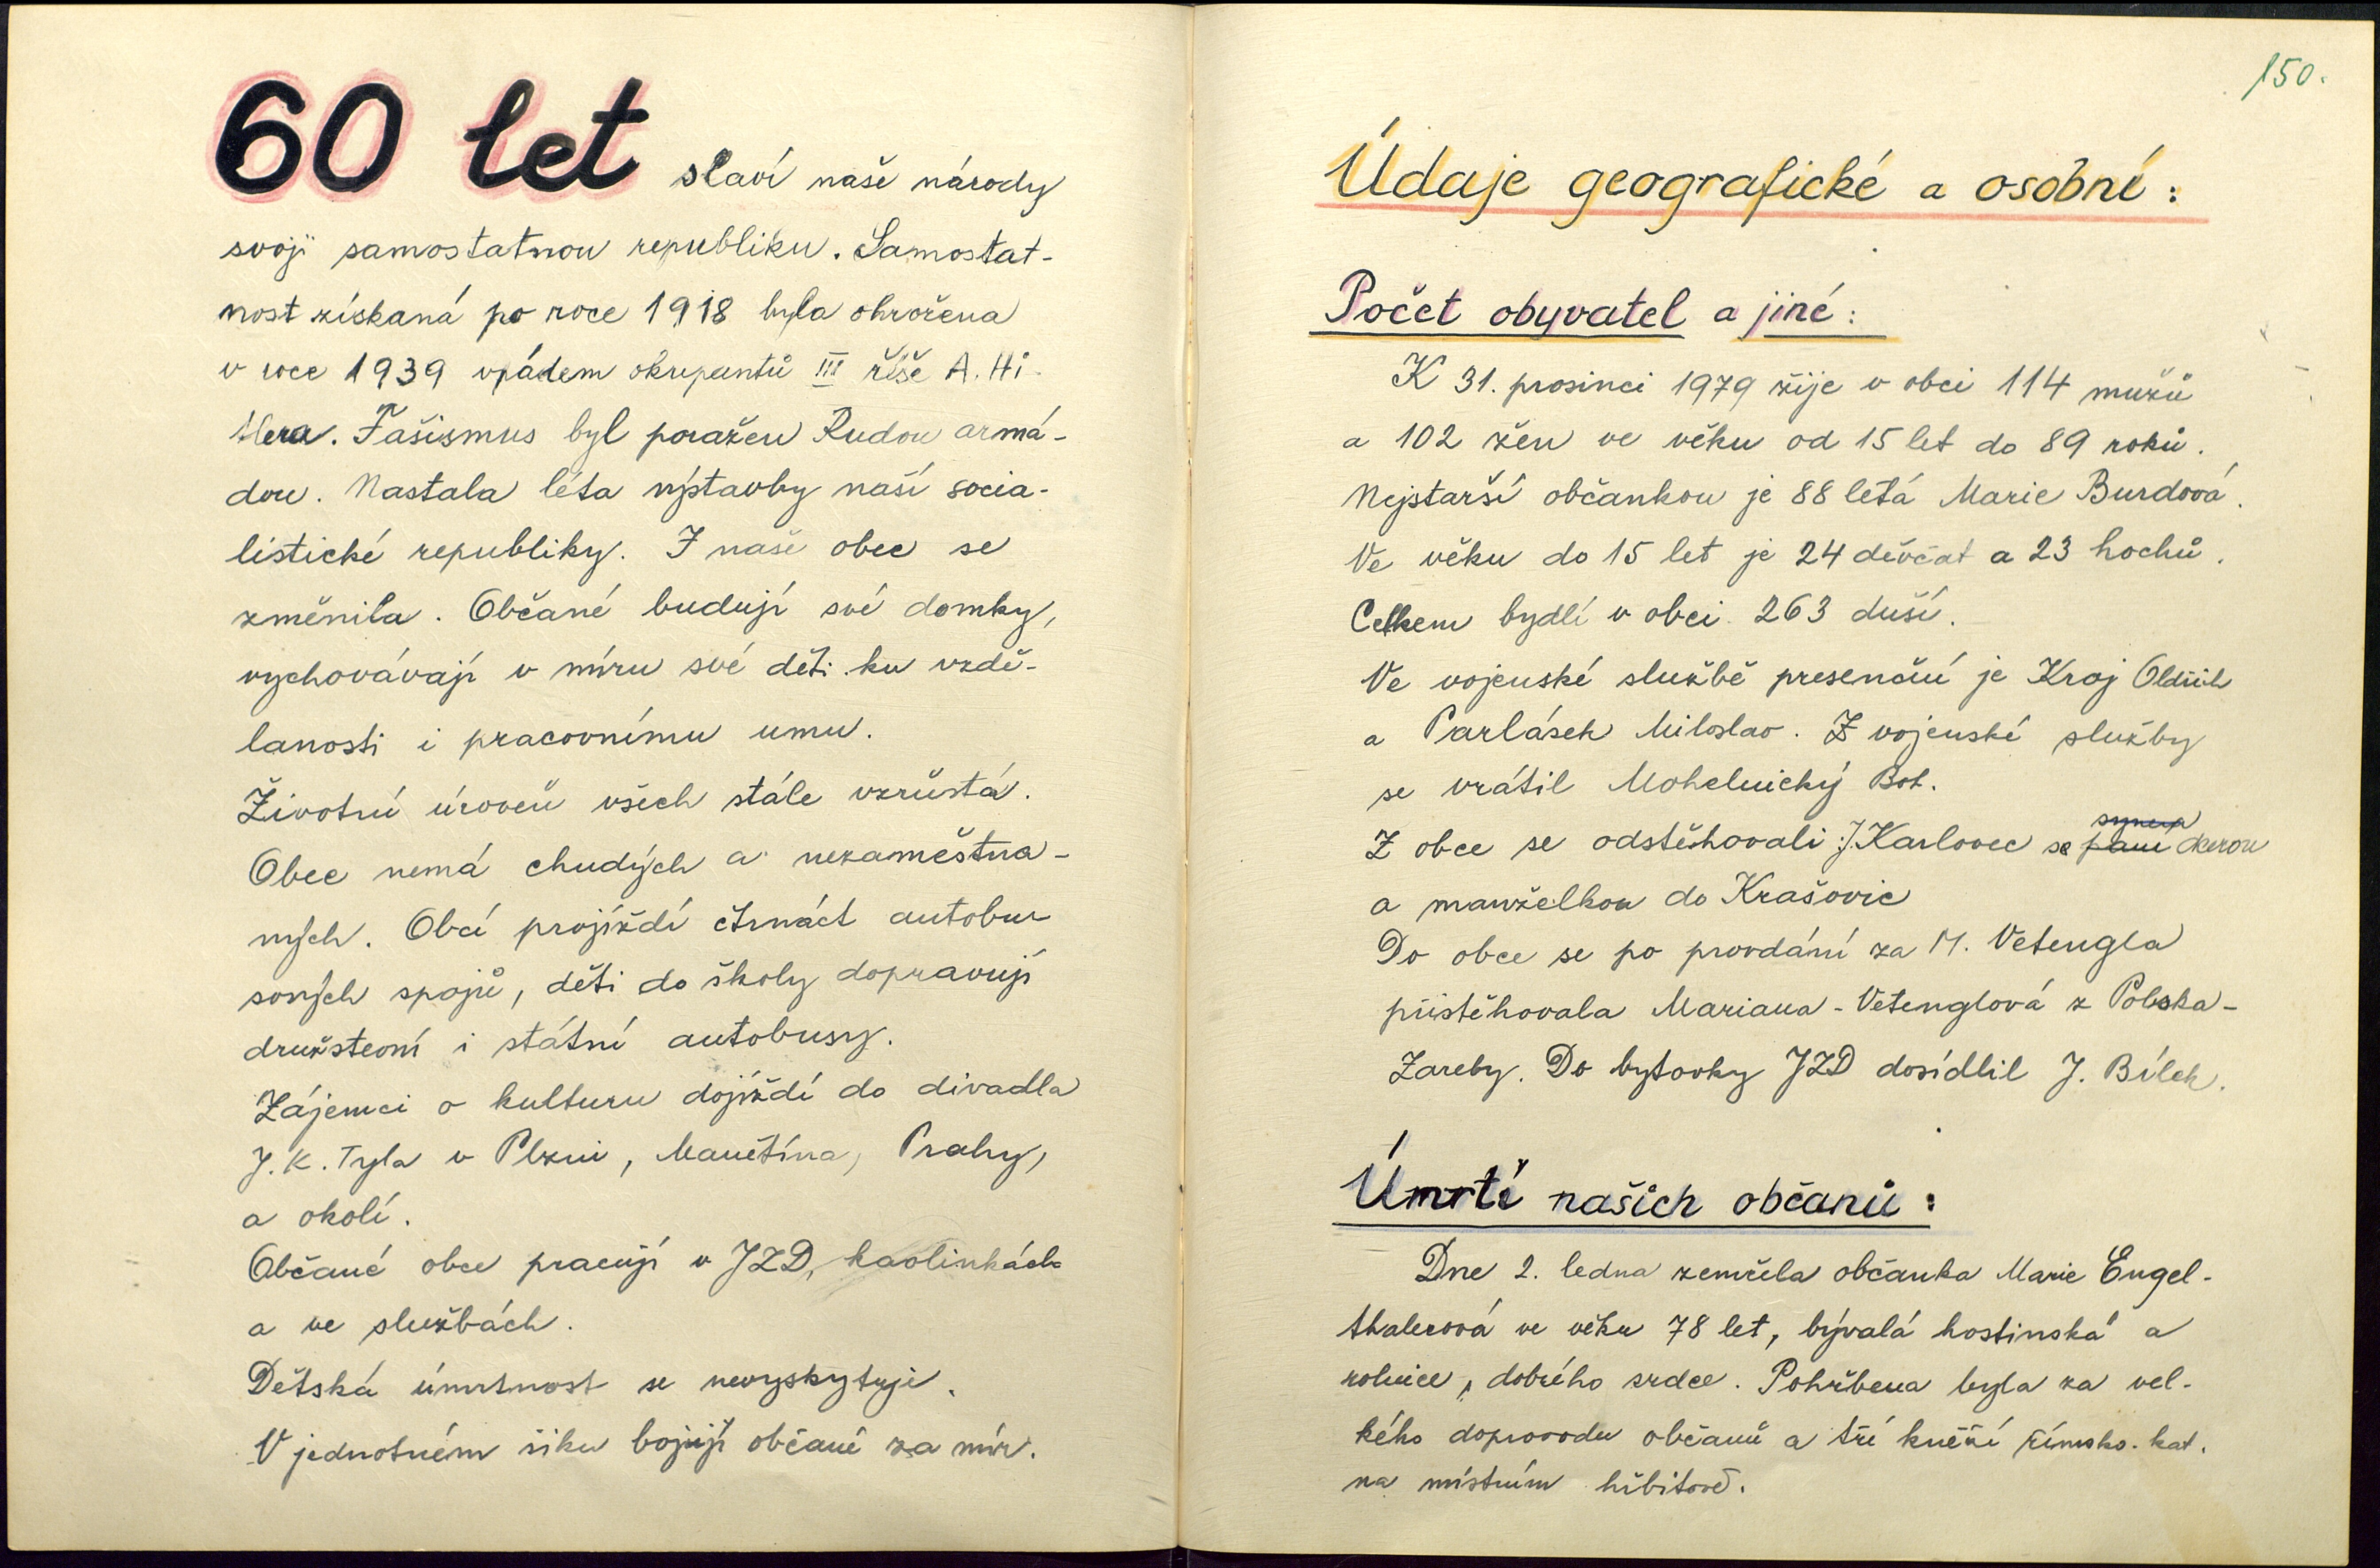 60 let slaví naše národy
svoji samostatnou republiku. Samostat-
nost získaná po roce 1918 byla ohrožena
v roce 1939 vpádem okupantů III říše A. Hi-
tlera. Fašismus byl poražen Rudou armá-
dou. Nastala léta výstavby naší socia-
listické republiky. I naše obec se
změnila. Občané budují své domky,
vychovávají v míru své děti ku vzdě-
lanosti i pracovnímu umu.
Životní úroveň všech stále vzrůstá.
Obec nemá chudých a nezaměstna-
ných. Obcí projíždí čtrnáct autobu-
sových spojů, děti do školy dopravují
družstevní i státní autobusy.
Zájemci o kulturu dojíždí do divadla
J. K. Tyla v Plzni, Manětína, Prahy,
a okolí.
Občané obce pracují v JZD, kaolinkách
a ve službách.
Dětská úmrtnost se nevyskytuje.
V jednotném šiku bojují občané za mír.
150.
Údaje geografické a osobní:
Počet obyvatel a jiné:
K 31. prosinci 1979 žije v obci 114 mužů
a 102 žen ve věku od 15 let do 89 roků.
Nejstarší občankou je 88 letá Marie Burdová.
Ve věku do 15 let je 24 děvčat a 23 hochů.
Celkem bydlí v obci 263 duší.
Ve vojenské službě presenční je Kroj Oldřich
a Parlásek Miloslav. Z vojenské služby
se vrátil Mohelnický Boh.
synem
Z obce se odstěhovali J. Karlovec se paní dcerou
a manželkou do Krašovic
Do obce se po provdání za M. Vetengla
přistěhovala Mariana-Vetenglová z Polska-
Zareby. Do bytovky JZD dosídlil J. Bílek.
Úmrtí našich občanů:
Dne 2. ledna zemřela občanka Marie Engel-
thalerová ve věku 78 let, bývalá hostinská a
rolnice, dobrého srdce. Pohřbena byla za vel-
kého doprovodu občanů a tří kněží římsko. kat.
na místním hřbitově.